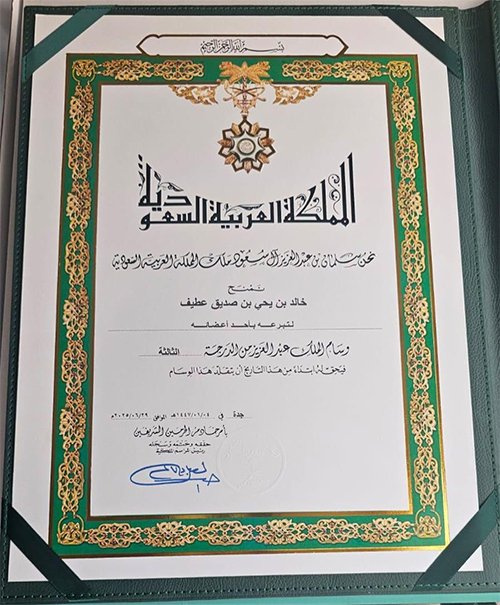 بسم الله الرحمن الرحيم
المملكة العربية السعودية
نحن سلمان بن عبدالعزيز آل سعود ملك المملكة العربية السعودية
نمنح
خالد بن يحي بن صديق عطيف
لتبرعه بأحد أعضائه
وسام الملك عبدالعزيز من الدرجة الثالثة
فيحق له ابتداء من هذا التاريخ أن يتقلد هذا الوسام
جدة في ١٤٤٧/٠١/٠٤هـ الموافق ٢٠٢٥/٠٦/٢٩م
بأمر خادم الحرمين الشريفين
حققه وختمه وسجله
رئيس المراسم الملكية